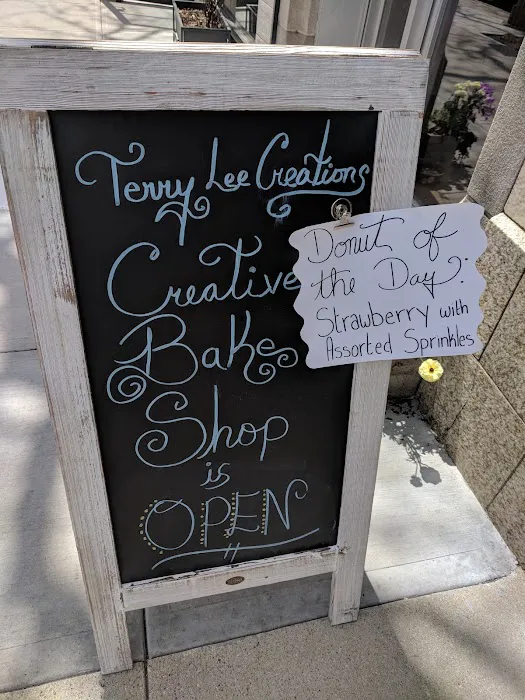 Terry Lee Creations
Creative
Bake
Shop
is
OPEN
Donut of
the Day:
Strawberry with
Assorted Sprinkles